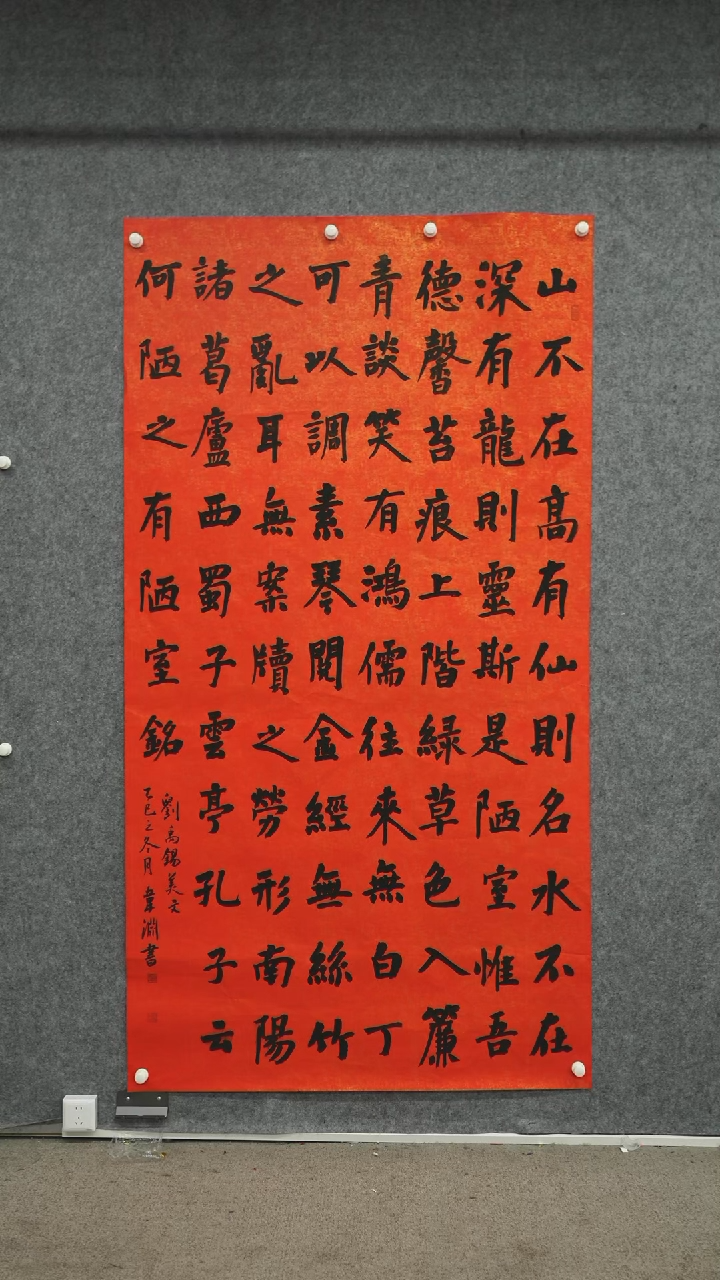 山不在高有仙則名水不在
深有龍則靈斯是陋室惟吾
德馨苔痕上階綠草色入簾
青談笑有鴻儒往來無白丁
可以調素琴閱金經無絲竹
之亂耳無案牘之勞形南陽
諸葛廬西蜀子雲亭孔子云
何陋之有陋室銘
劉禹錫美文
乙巳之冬月 韋淵書